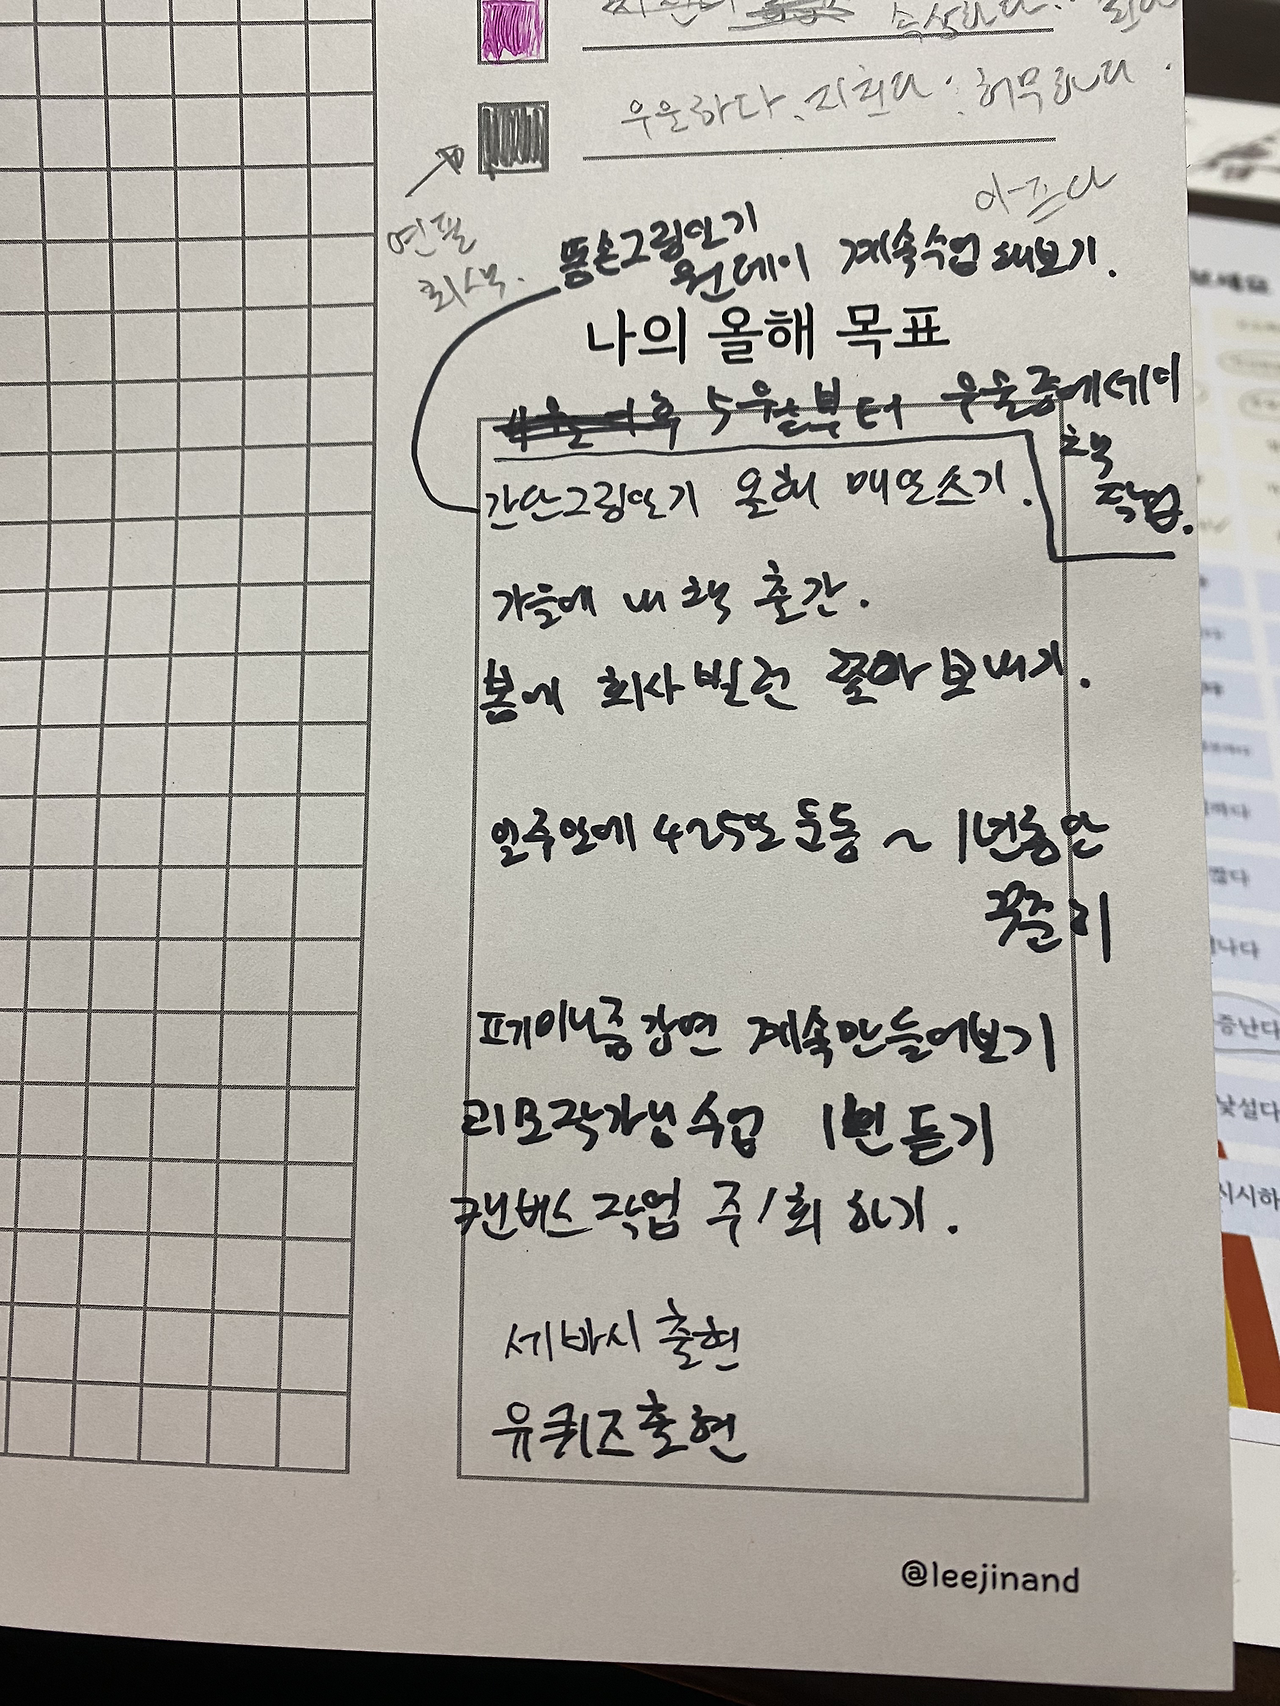 속상하다.
우울하다. 지친다. 허무하다.
아프다
연필
회색.
똥손그림일기
원데이 계속수업 해보기.
나의 올해 목표
5월부터 우울증에세이
책
작업.
간단그림일기 올해 매일쓰기.
가을에 내 책 출간.
봄에 회사빌런 쫓아보내기.
일주일에 4~5일 운동 ~ 1년동안
꾸준히
계속만들어보기
리모작가님수업 1번 듣기
캔버스작업 주1회 하기.
세바시 출현
유퀴즈출현
@leejinand
증난다
낯설다
시시하